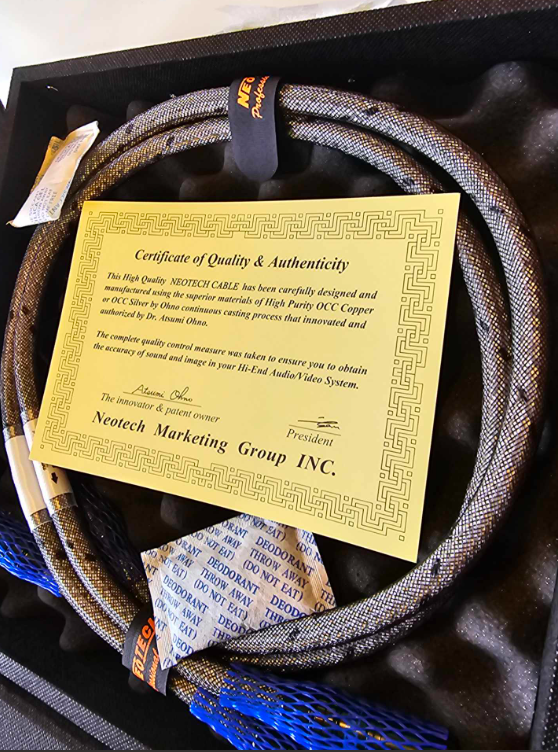 NEO
Profess
Certificate of Quality & Authenticity
This High Quality NEOTECH CABLE has been carefully designed and
manufactured using the superior materials of High Purity OCC Copper
or OCC Silver by Ohno continuous casting process that innovated and
authorized by Dr. Atsumi Ohno.
The complete quality control measure was taken to ensure you to obtain
the accuracy of sound and image in your Hi-End Audio/Video System.
Atsumi Ohno
The innovator & patent owner
President
Neotech Marketing Group INC.
NOT EAT)
DEODORANT
THROW AWAY
(DO NOT EAT)
DEODORANT
THROW AWAY
(DO NOT EAT)
DEODORANT
THROW AWAY
(DO NOT EAT)
DEODORANT